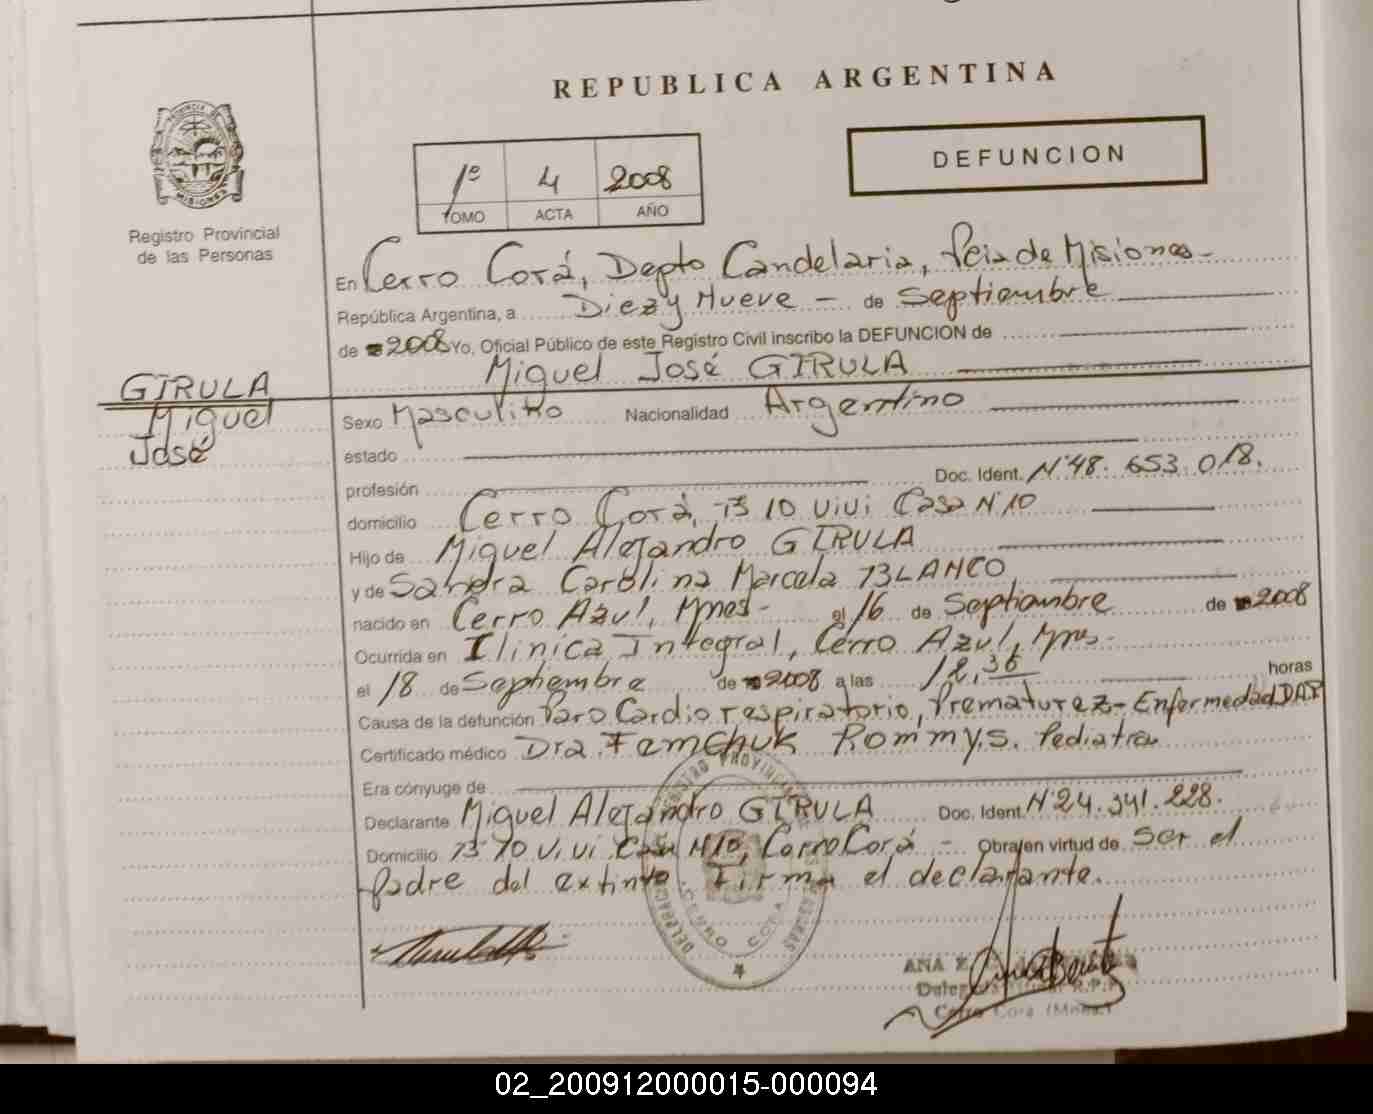 REPUBLICA ARGENTINA
PROVINCIA DE
MISIONES
Registro Provincial
de las Personas
1º 4 2008
TOMO ACTA AÑO
DEFUNCION
En Cerro Corá, Depto Candelaria, Pcia de Misiones-
República Argentina, a Diez y Nueve - de Septiembre
de 2008 Yo, Oficial Público de este Registro Civil inscribo la DEFUNCION de
Miguel José GIRULA
GIRULA
Miguel
José
Sexo Masculino Nacionalidad Argentino
estado
profesión Doc. Ident. Nº48.653.018.
domicilio Cerro Corá, Bº 10 vivi Casa Nº10
Hijo de Miguel Alejandro GIRULA
y de Sandra Carolina Marcela BLANCO
nacido en Cerro Azul, Mnes- el 16 de Septiembre de 2008
Ocurrida en Clinica Integral, Cerro Azul, Mnes-
el 18 de Septiembre de 2008 a las horas
Causa de la defunción Paro Cardiorespiratorio, Prematurez- Enfermedad
Certificado médico Dra. Femchuk Rommy S. Pediatra
Era cónyuge de
Declarante Miguel Alejandro GIRULA Doc. Ident. Nº24.341.228.
Domicilio Bº 10 vivi Casa Nº10, Cerro Corá - Obra en virtud de Ser el
padre del extinto. Firma el declarante.
REGISTRO PROVINCIAL DE LAS PERSONAS
CERRO CORA
ANA
Cerro Corá (Mnes.)
02_200912000015-000094